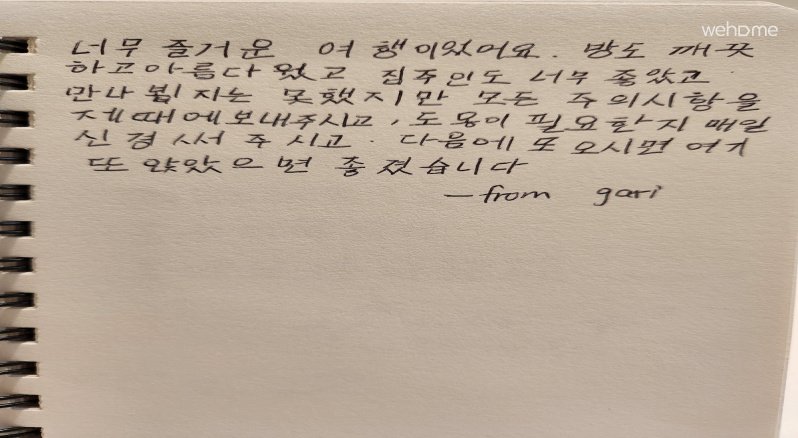 wehome
너무 즐거운 여행이었어요. 방도 깨끗
하고 아름다웠고 집주인도 너무 좋았고
만나 뵙지는 못했지만 모든 주의사항을
제때에 보내주시고, 도움이 필요한지 매일
신경써 주시고. 다음에 또 오시면 여기
또 앉았으면 좋겠습니다
—from gari